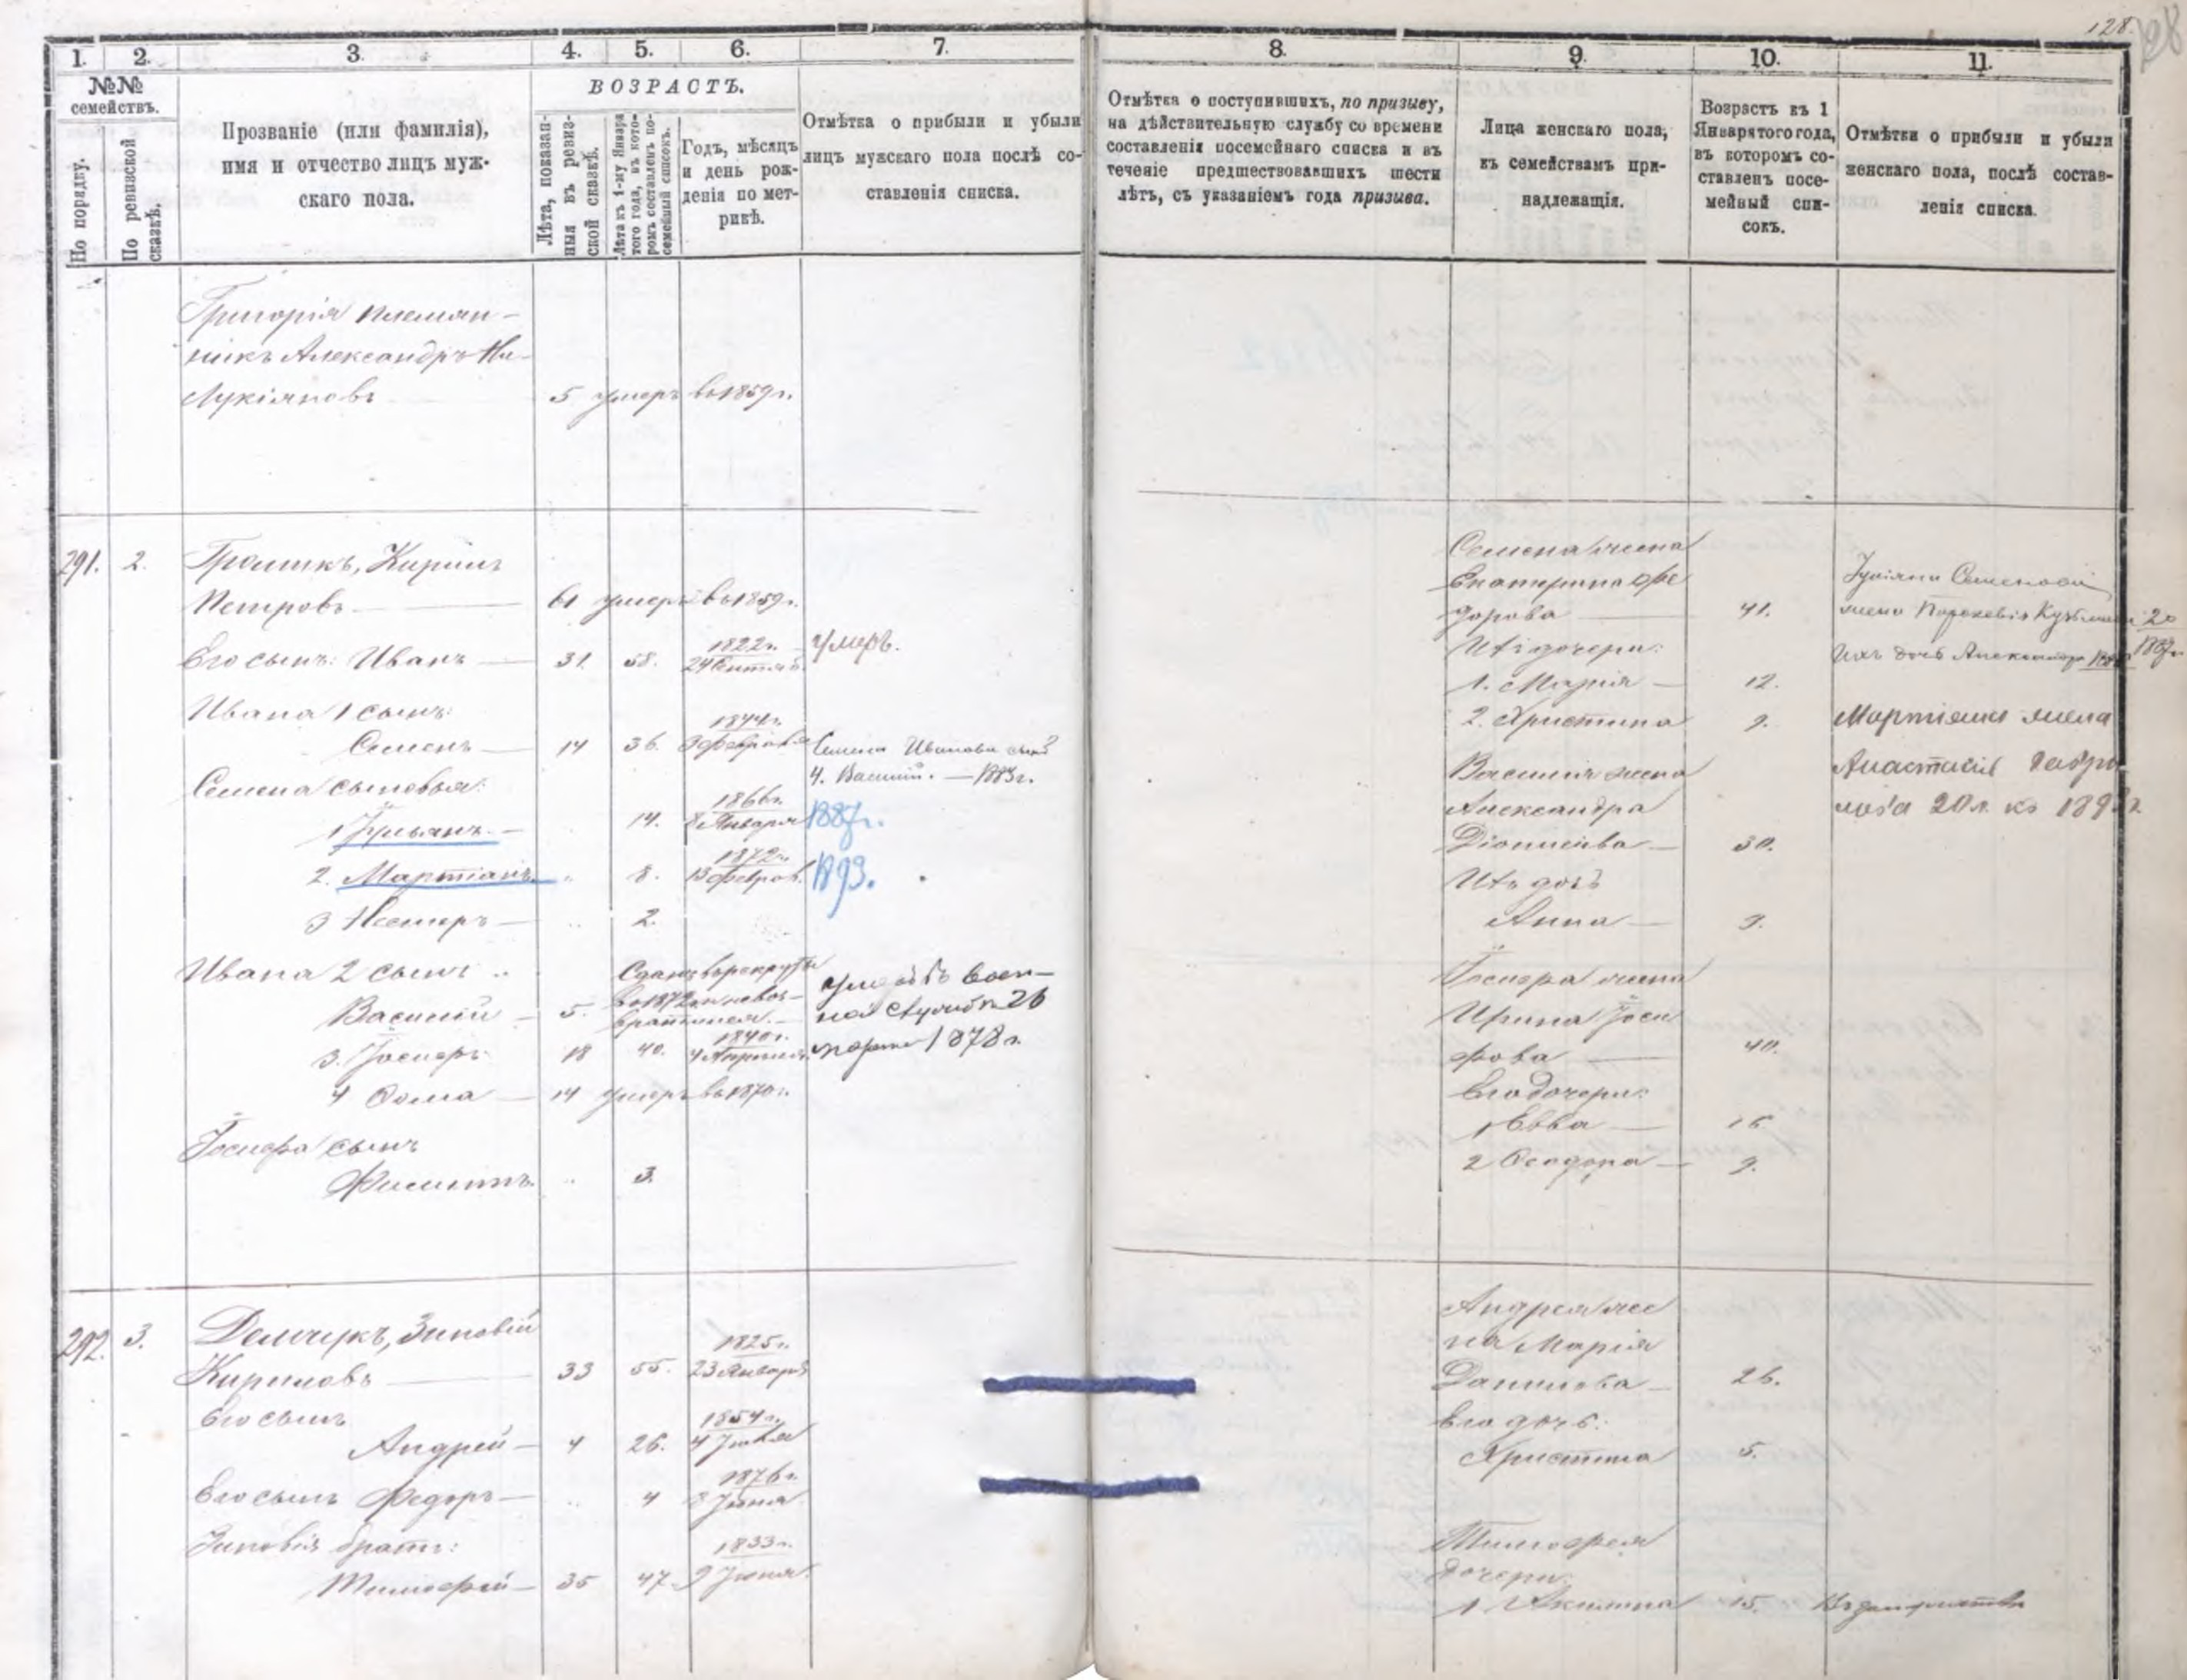 128.
128
1. 2. 3. 4. 5. 6. 7. 8. 9. 10. 11.
№№ семействъ.
По порядку.
По ревизской сказкѣ.
Прозваніе (или фамилія),
имя и отчество лицъ муж-
скаго пола.
ВОЗРАСТЪ.
Лѣта, показан-
ныя въ ревиз-
ской сказкѣ.
Лѣта къ 1-му Января
того года, въ кото-
ромъ составленъ по-
семейный списокъ.
Годъ, мѣсяцъ
и день рож-
денія по мет-
рикѣ.
Отмѣтка о прибыли и убыли
лицъ мужскаго пола послѣ со-
ставленія списка.
Отмѣтка о поступившихъ, по призыву,
на дѣйствительную службу со времени
составленія посемейнаго списка и въ
теченіе предшествовавшихъ шести
лѣтъ, съ указаніемъ года призыва.
Лица женскаго пола,
къ семействамъ при-
надлежащія.
Возрастъ къ 1
Января того года,
въ которомъ со-
ставленъ посе-
мейный спи-
сокъ.
Отмѣтки о прибыли и убыли
женскаго пола, послѣ состав-
ленія списка.
Григорія племян-
никъ Александръ
Лукіяновъ 5 умеръ въ 1859 г.
291. 2. Кирилъ
Петровъ 61 умеръ въ 1859 г.
Его сынъ: Иванъ 31. 58. 1822 г. 24 Сентяб. умеръ.
Ивана 1 сынъ:
Семенъ 14 36. 1844 г. 3 Февраля Семена Иванова сынъ
4. Василій. — 1883 г.
Семена сыновья:
1 Юльянъ. 14. 1866 г. 8 Января 1887 г.
2. Мартіанъ 8. 1872 г. 13 Феврал. 1893.
3 Несторъ 2.
Ивана 2 сынъ Сданъ въ рекруты
въ 1872 и невоз-
Василій 5. вратился.
умеръ въ воен-
ной службѣ 26
марта 1878 г.
3. Іосифъ 18 40. 1840 г. 4 Апрѣля
4 Ѳома 14 умеръ въ 1870 г.
Іосифа сынъ
Филиппъ 3.
Семена жена
Екатерина Фе
дорова 41.
Ихъ дочери:
1. Марія 12.
2. Христина 9.
Василія жена
Александра
Діонисіева 30.
Ихъ дочь
Анна 9.
Іосифа жена
Ирина Іоси
фова 40.
Его дочери:
1 Евва 16
2 Ѳеодора 9.
Юліяна Семенова
жена Параскевія Кузьмина 20
1887 г.
Ихъ дочь Александра
Мартіяна жена
Анастасія Гаври
лова 20 л. къ 189
292. 3. Демчукъ, Зиновій
Кириловъ 33 55. 1825 г. 23 Января
Его сынъ
Андрей 4 26. 1854 г. 4 Іюля
Его сынъ Федоръ 4 1876 г. 8 Іюня
Зиновія братъ:
Тимофей 35 47 1833 г. 9 Іюня
Андрея же
на Марія
Данилова 26.
Его дочь:
Христина 5.
Тимофея
дочери:
1. Акилина 15. Въ замужествѣ